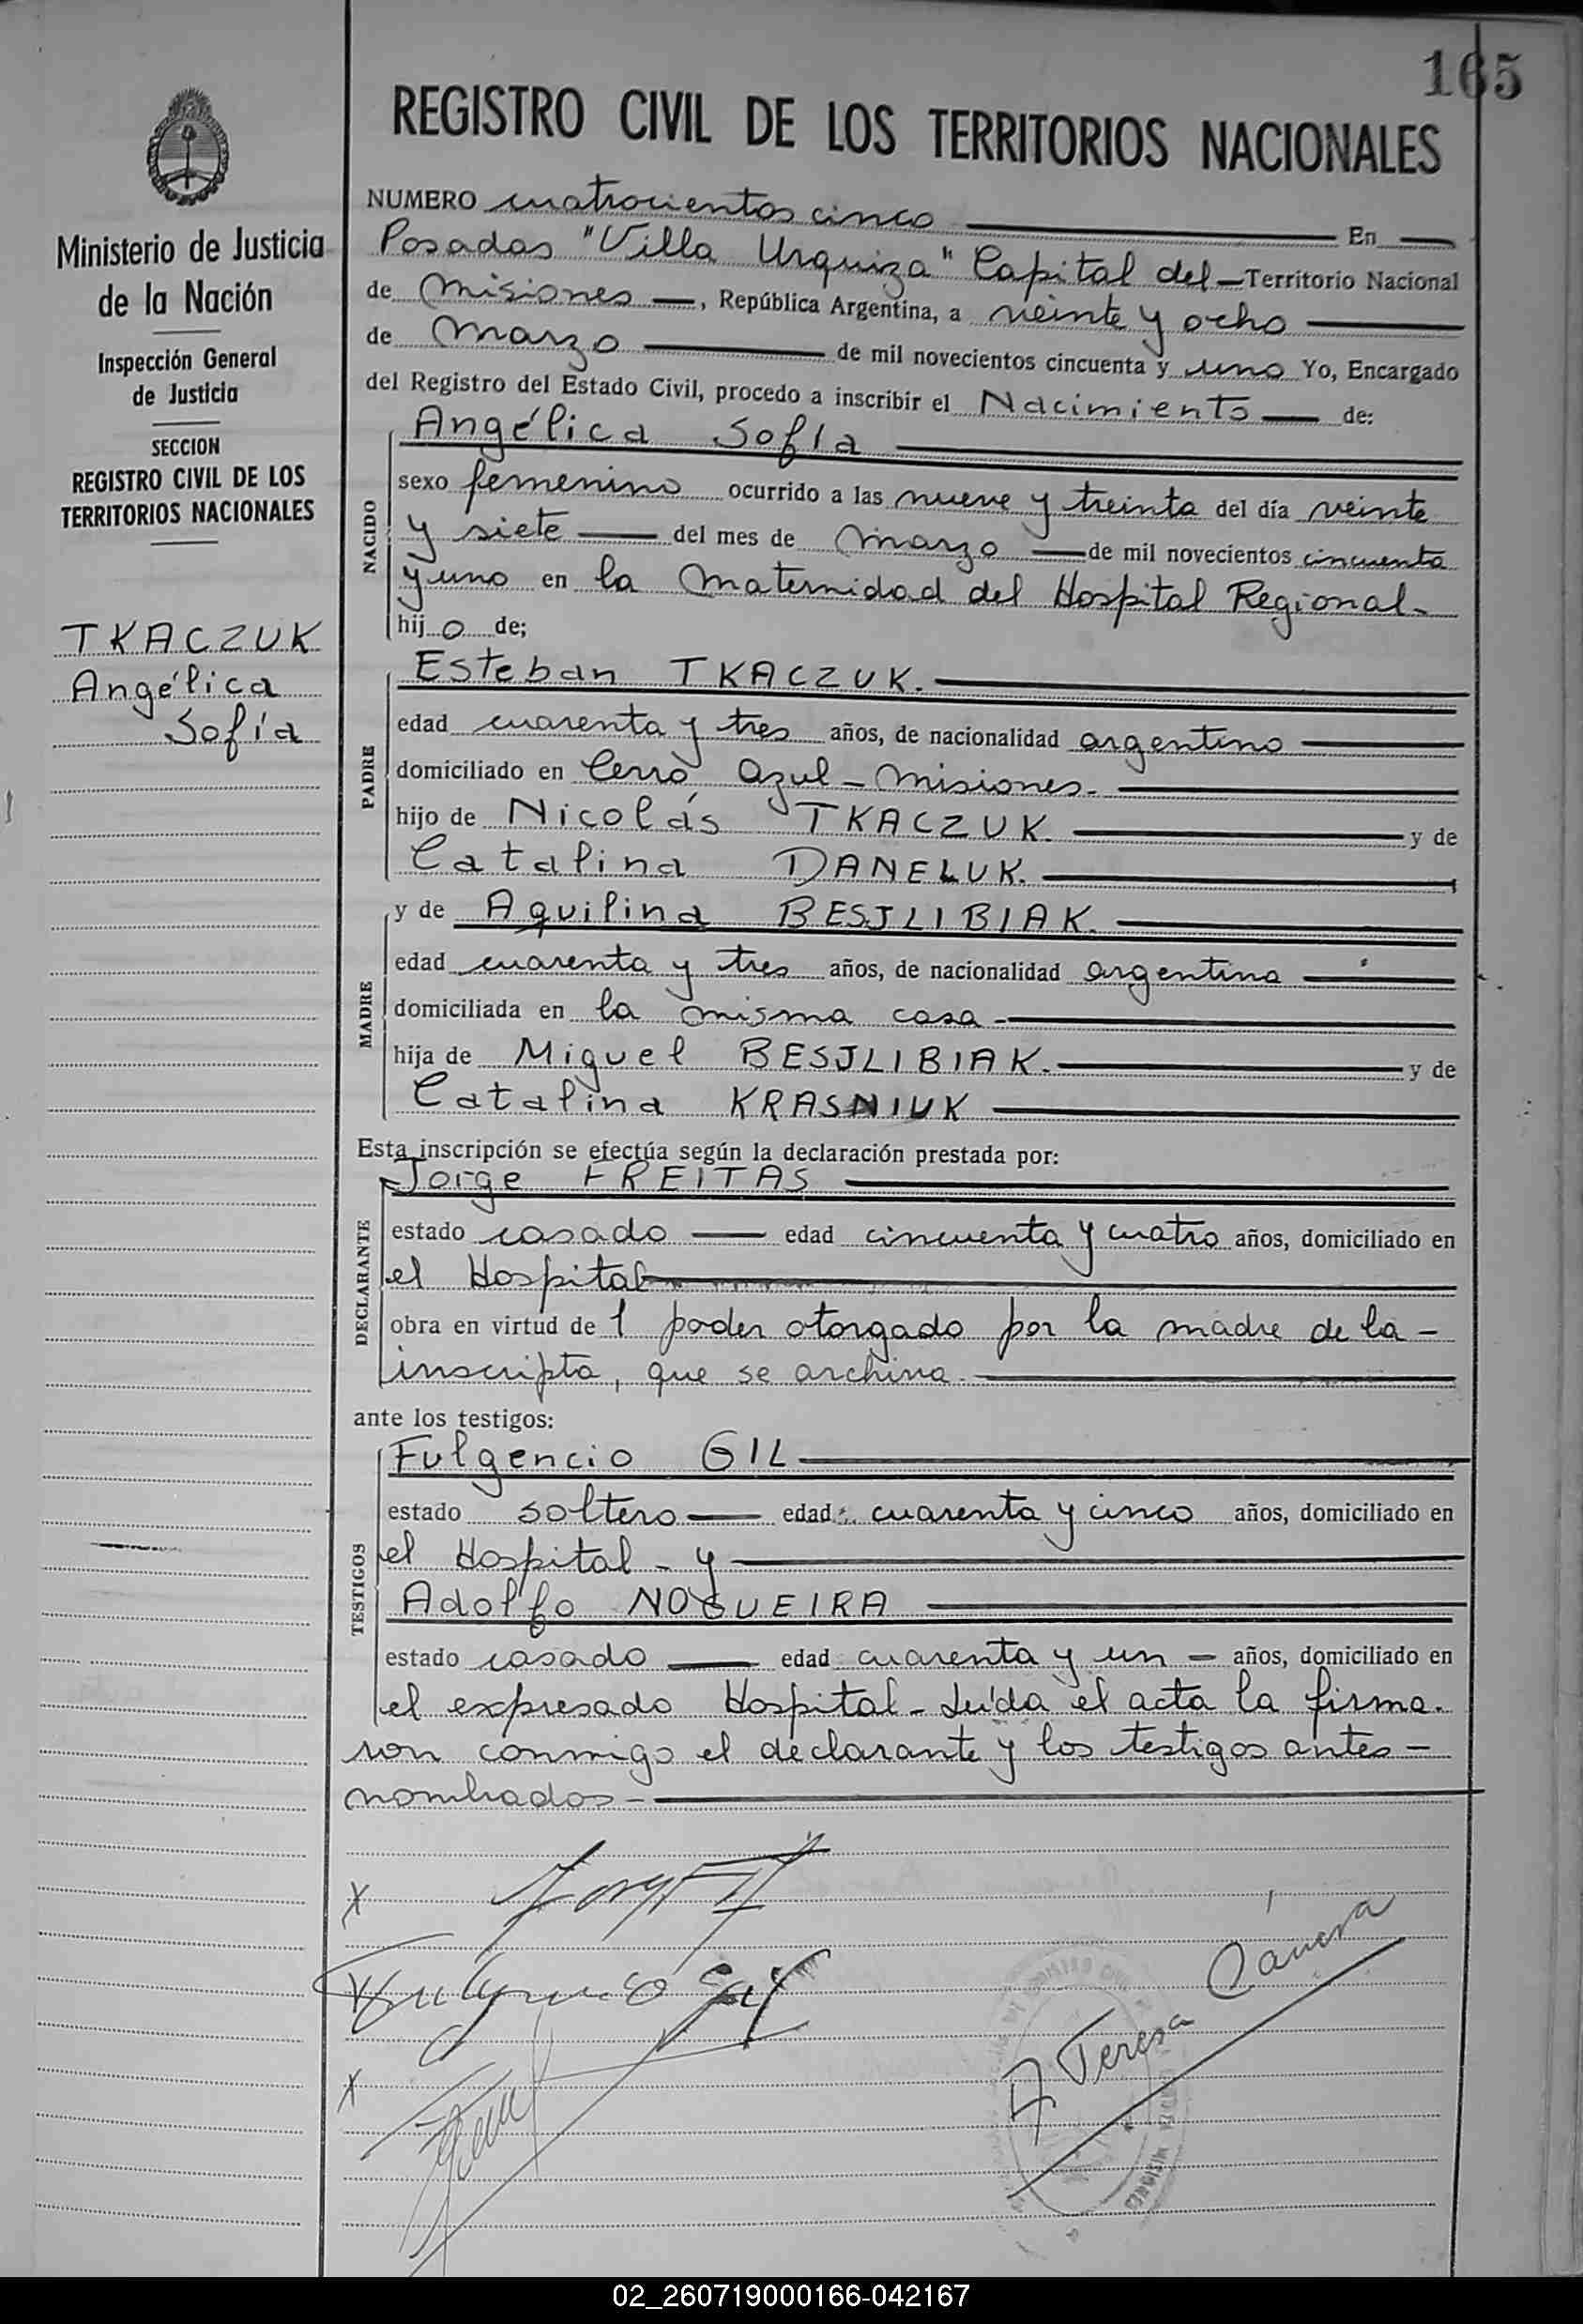 165
REGISTRO CIVIL DE LOS TERRITORIOS NACIONALES
Ministerio de Justicia
de la Nación
Inspección General
de Justicia
SECCION
REGISTRO CIVIL DE LOS
TERRITORIOS NACIONALES
TKACZUK
Angélica
Sofía
NUMERO cuatrocientos cinco En
Posadas "Villa Urquiza" Capital del Territorio Nacional
de Misiones, República Argentina, a veinte y ocho
de Marzo de mil novecientos cincuenta y uno Yo, Encargado
del Registro del Estado Civil, procedo a inscribir el Nacimiento de:
Angélica Sofía
NACIDO
sexo femenino ocurrido a las nueve y treinta del día veinte
y siete del mes de Marzo de mil novecientos cincuenta
y uno en la Maternidad del Hospital Regional-
hijo de;
Esteban TKACZUK.
PADRE
edad cuarenta y tres años, de nacionalidad argentino
domiciliado en Cerro Azul - Misiones.
hijo de Nicolás TKACZUK. y de
Catalina DANELUK.
y de Aquilina BESJLIBIAK.
MADRE
edad cuarenta y tres años, de nacionalidad argentina
domiciliada en la misma casa
hija de Miguel BESJLIBIAK. y de
Catalina KRASNIUK
Esta inscripción se efectúa según la declaración prestada por:
Jorge FREITAS
DECLARANTE
estado casado edad cincuenta y cuatro años, domiciliado en
el Hospital
obra en virtud de 1 poder otorgado por la madre de la -
inscripta, que se archiva.
ante los testigos:
Fulgencio GIL
TESTIGOS
estado soltero edad cuarenta y cinco años, domiciliado en
el Hospital - y
Adolfo NOGUEIRA
estado casado edad cuarenta y un - años, domiciliado en
el expresado Hospital - Leída el acta la firma-
ron conmigo el declarante y los testigos antes -
nombrados -
X
Fulgencio Gil
X
A Teresa
MISIONES
02_260719000166-042167